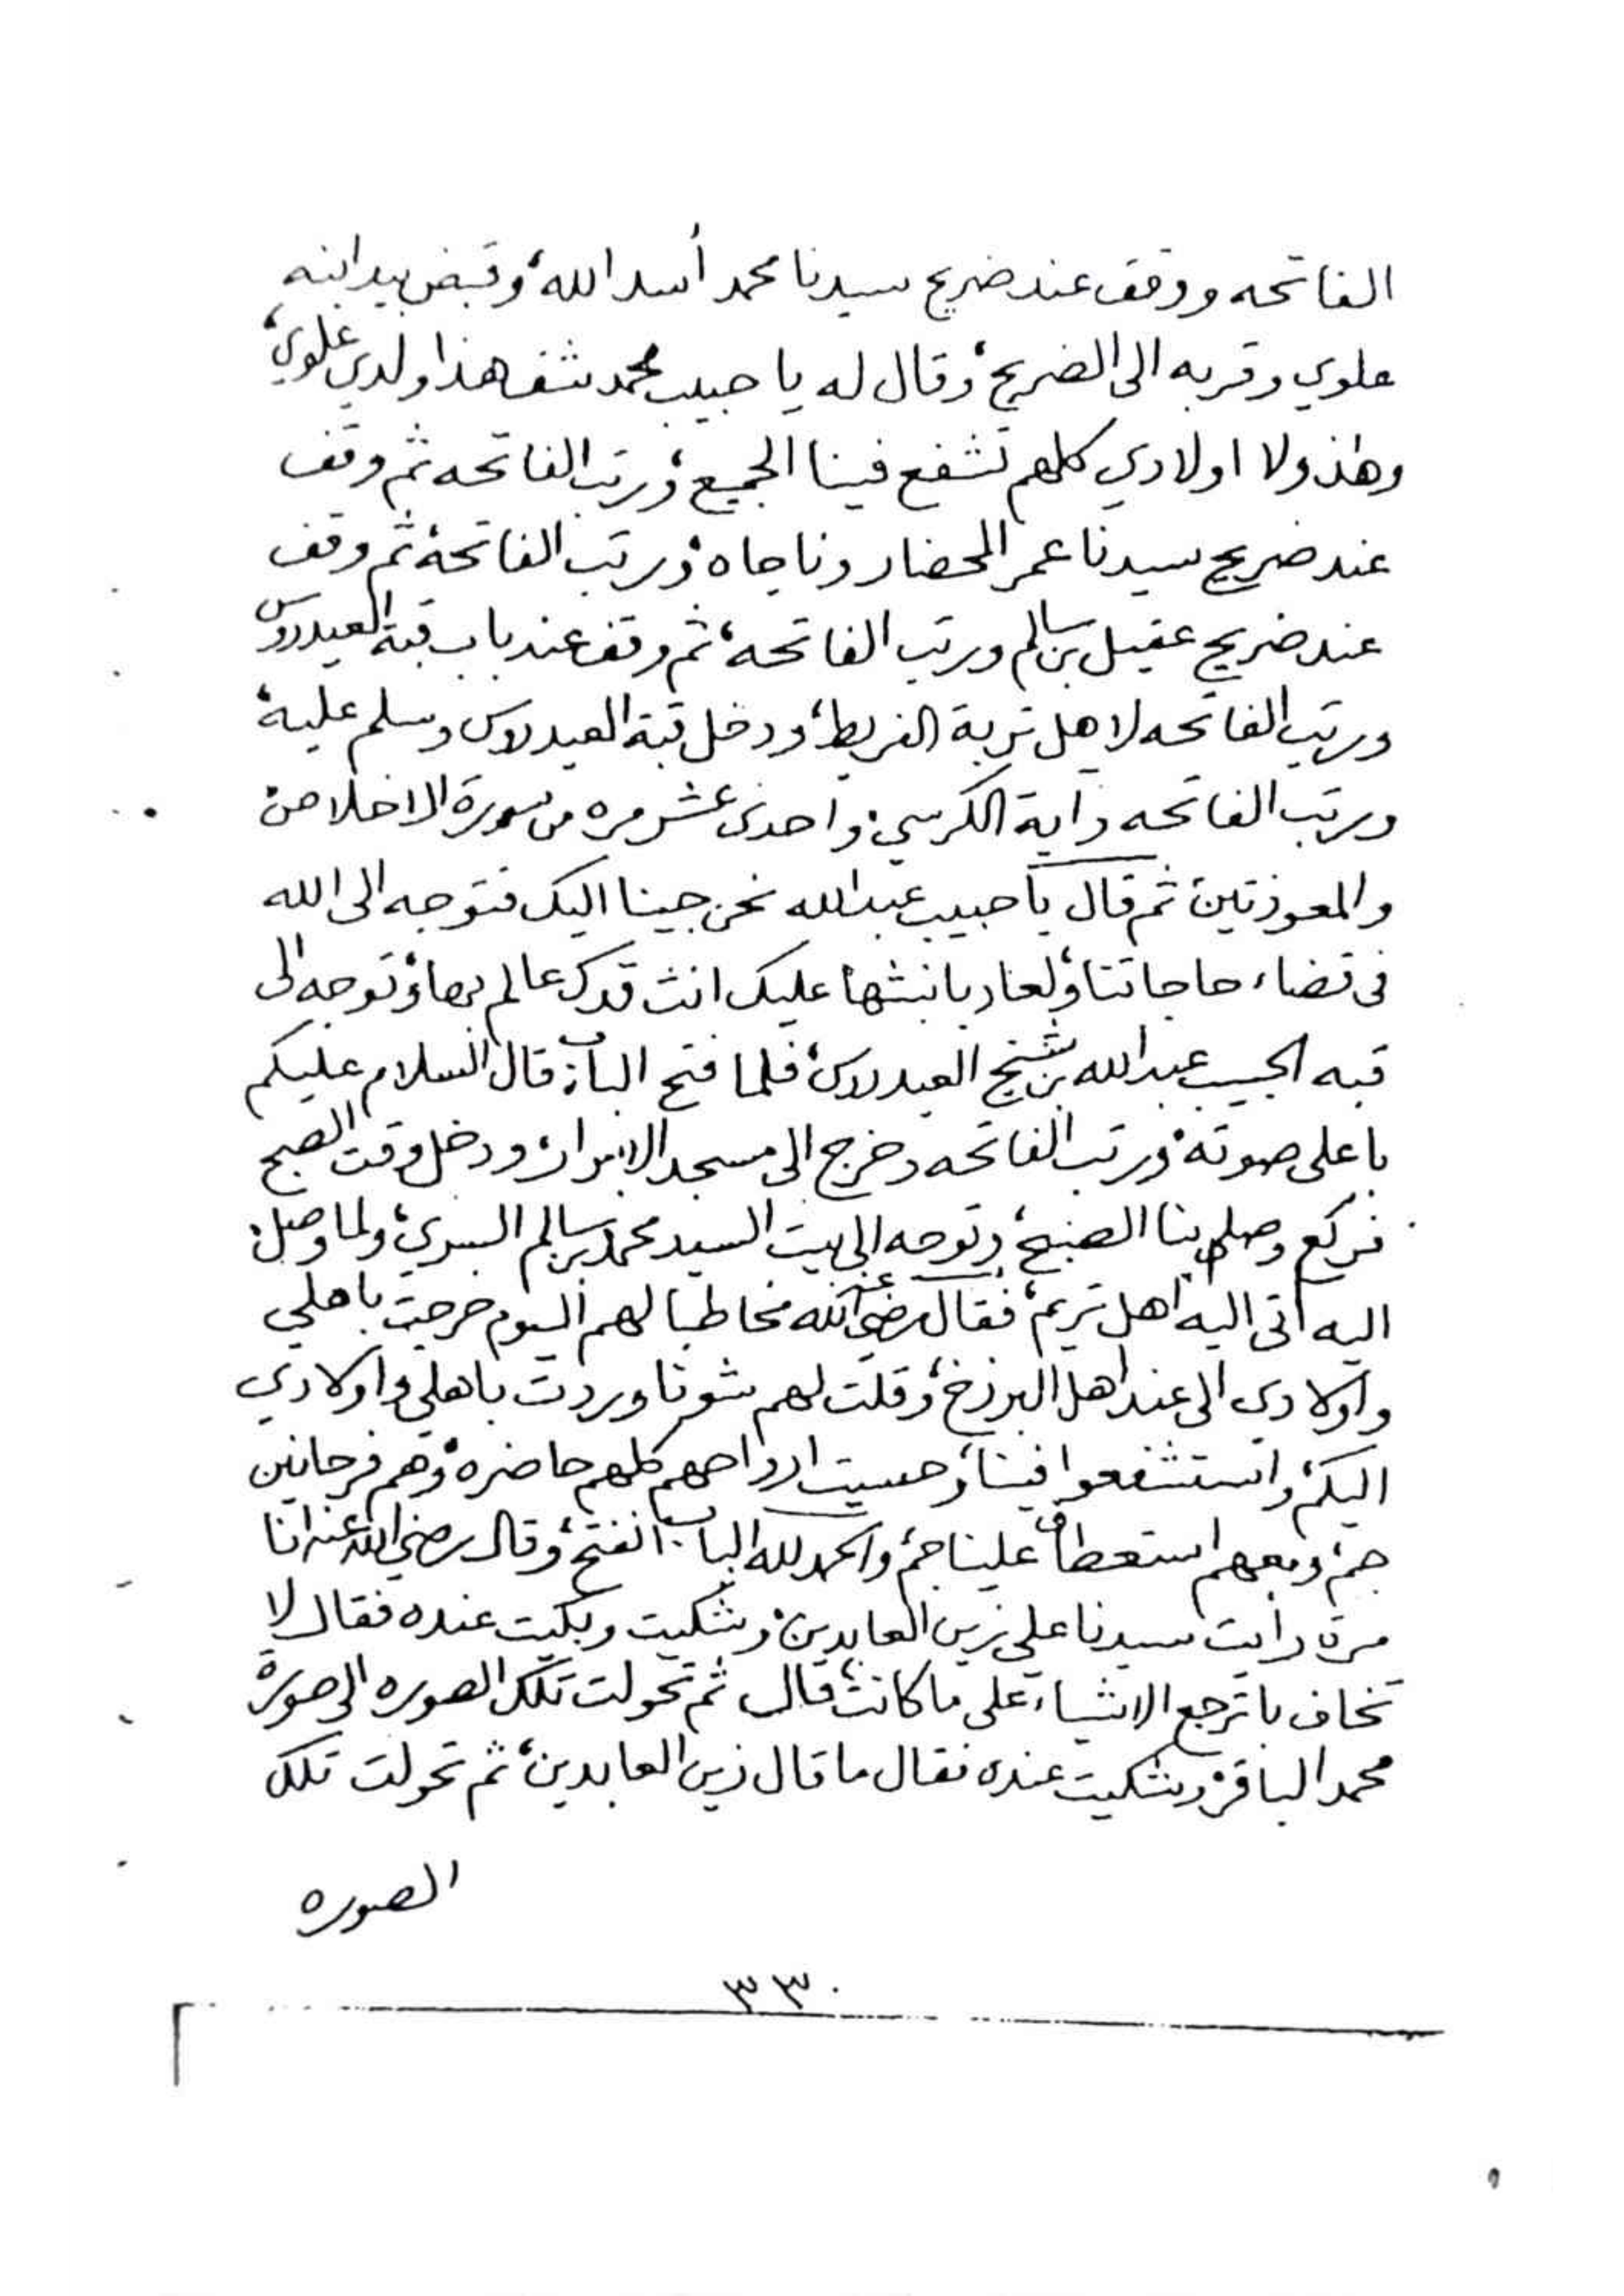 الفاتحه ووقف عند ضريح سيدنا محمد أسد الله، وقبض بيد ابنه
علوي وقربه الى الضريح، وقال له يا حبيب محمد شف هذا ولدي علوي،
وهٰذولا اولادي كلهم تشفع فينا الجميع، ورتب الفاتحه ثم وقف
عند ضريح سيدنا عمر المحضار وناجاه، ورتب الفاتحة، ثم وقف
عند ضريح عقيل بن سالم ورتب الفاتحه، ثم وقف عند باب قبة العيدروس
ورتب الفاتحه لاهل تربة الفريط، ودخل قبة العيدروس وسلم عليه،
ورتب الفاتحه وآية الكرسي، واحدى عشر مره من سورة الاخلاص،
والمعوذتين، ثم قال يا حبيب عبدالله نحن جينا اليك فتوجه الى الله
فى قضاء حاجاتنا، ولعاد بانبثها عليك انت قدك عالم بها، وتوجه الى
قبه الحبيب عبدالله بن شيخ العيدروس، فلما فتح الباب، قال السلام عليكم
باعلى صوته، ورتب الفاتحه وخرج الى مسجد الابرار، ودخل وقت الصبح
فركع وصلى بنا الصبح، وتوجه الى بيت السيد محمد بن سالم السري، ولما وصل
اليه اتى اليه اهل تريم، فقال رضي الله عنه مخاطبا لهم اليوم خرجت باهلي
واولادى الى عند اهل البرزخ، وقلت لهم شونا وردت باهلي واولادي
اليكم، واستشفعوا فينا، وحسيت ارواحهم كلهم حاضره، وهم فرحانين
جم، ومعهم استعطاف علينا جم، والحمد لله الباب انفتح، وقال رضي الله عنه انا
مرة رأيت سيدنا علي زين العابدين، وشكيت وبكيت عنده فقال لا
تخاف باترجع الاشياء على ما كانت، قال ثم تحولت تلك الصوره الى صورة
محمد الباقر، وشكيت عنده فقال ما قال زين العابدين، ثم تحولت تلك
الصوره
٣٣٠